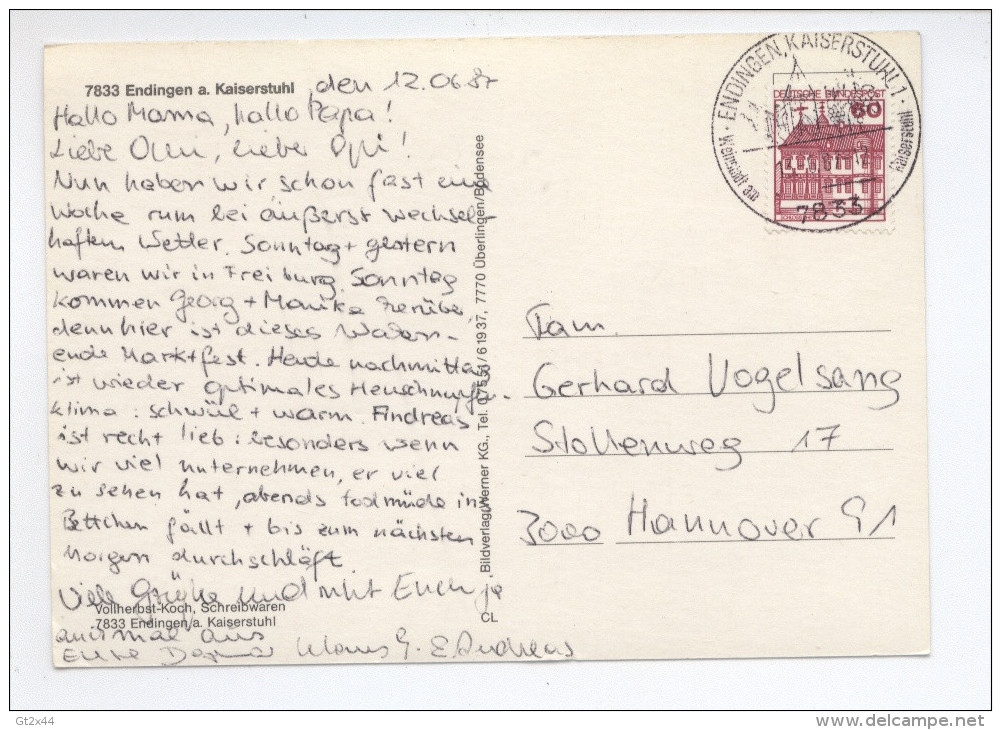 7833 Endingen a. Kaiserstuhl den 12.06.87
Hallo Mama, hallo Papa!
Liebe Omi, lieber Opi!
Nun haben wir schon fast eine
Woche rum bei äußerst wechsel-
haftem Wetter. Sonntag + gestern
waren wir in Freiburg. Sonntag
kommen Georg + Monika rüber,
denn hier ist dieses Wochen-
ende Marktfest. Heute nachmittag
ist wieder optimales Heuschnupfen-
klima: schwül + warm. Andreas
ist recht lieb: besonders wenn
wir viel unternehmen, er viel
zu sehen hat, abends todmüde in
Bettchen fällt + bis zum nächsten
Morgen durchschläft.
Viele Grüße und ruft Euch ja
Vollherbst-Koch, Schreibwaren
7833 Endingen a. Kaiserstuhl
CL
aus
Eure Klaus G. + Andreas
Bildverlag Werner KG., Tel. 07551/61937, 7770 Überlingen/Bodensee
ENDINGEN, KAISERSTUHL 1
Weinstadt am Kaiserstuhl
7833
DEUTSCHE BUNDESPOST
60
Fam.
Gerhard Vogelsang
Stollenweg 17
3000 Hannover 91
Gt2x44
delcampe.net